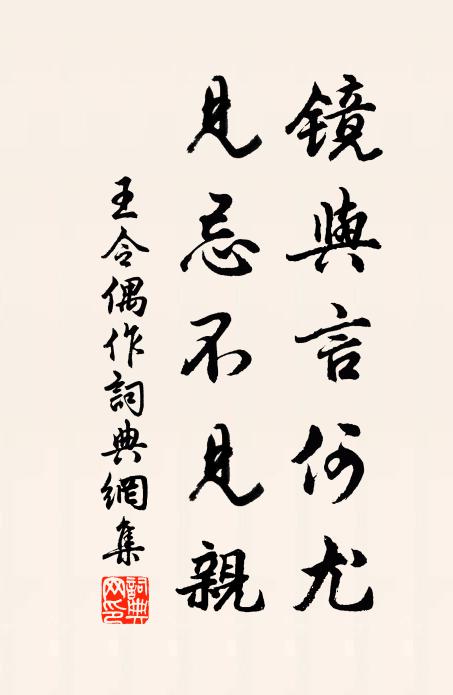 鏡與言何尤
見忌不見親
王令偶作詞典網集
詞典網印